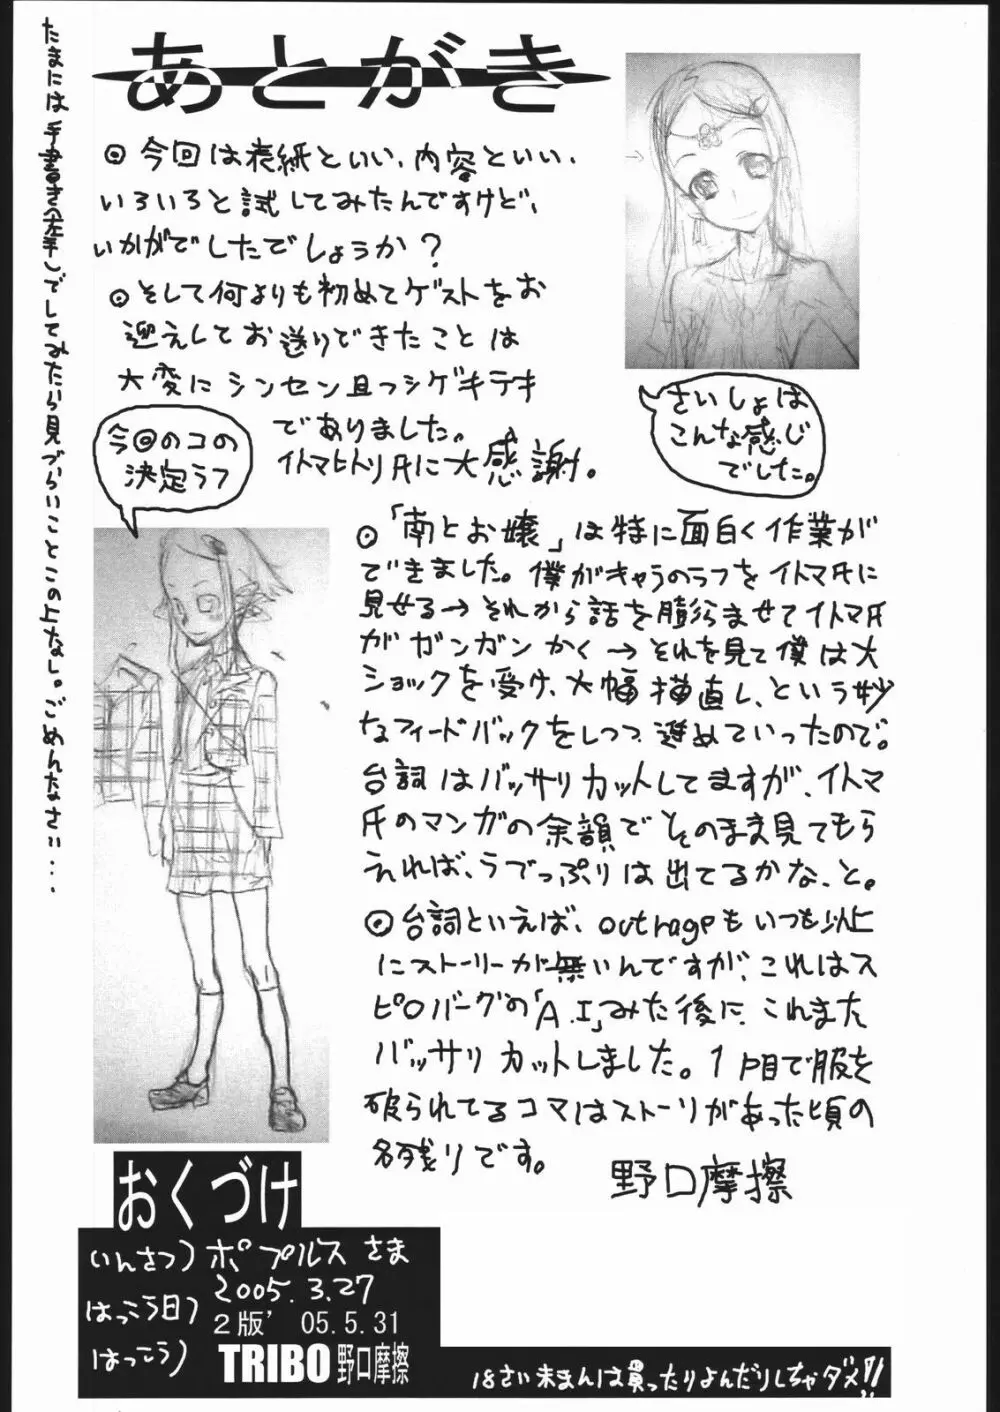 あとがき
◎今回は表紙といい、内容といい、
いろいろと試してみたんですけど、
いかがでしたでしょうか?
◎そして何よりも初めてゲストをお
迎えしてお送りできたことは
大変にシンセン且つシゲキテキ
でありました。
イトマヒトリ氏に大感謝。
さいしょは
こんな感じ
でした。
今回のコの
決定ラフ
◎「南とお嬢」は特に面白く作業が
できました。僕がキャラのラフをイトマ氏に
見せる→それから話を膨らませてイトマ氏
がガンガンかく→それを見て僕は大
ショックを受け、大幅描直し、という妙
なフィードバックをしつつ進めていったので。
台詞はバッサリカットしてますが、イトマ
氏のマンガの余韻でそのまま見てもら
えれば、うでっぷりは出てるかな、と。
◎台詞といえば、outrageもいつも以上
にストーリーが無いんですが、これはス
ピロバーグの「A.I」みた後に、これまた
バッサリカットしました。1P目で服を
破られてるコマはストーリがあった頃の
名残りです。
野口摩擦
たまには手書き(左手)でしてみたら見づらいことこの上なし。ごめんなさい...
おくづけ
いんさつ)ポプルスさま
はっこう日)2005.3.27
2版' 05.5.31
はっこう)TRIBO野口摩擦
18さい未まんは買ったりよんだりしちゃダメ!!